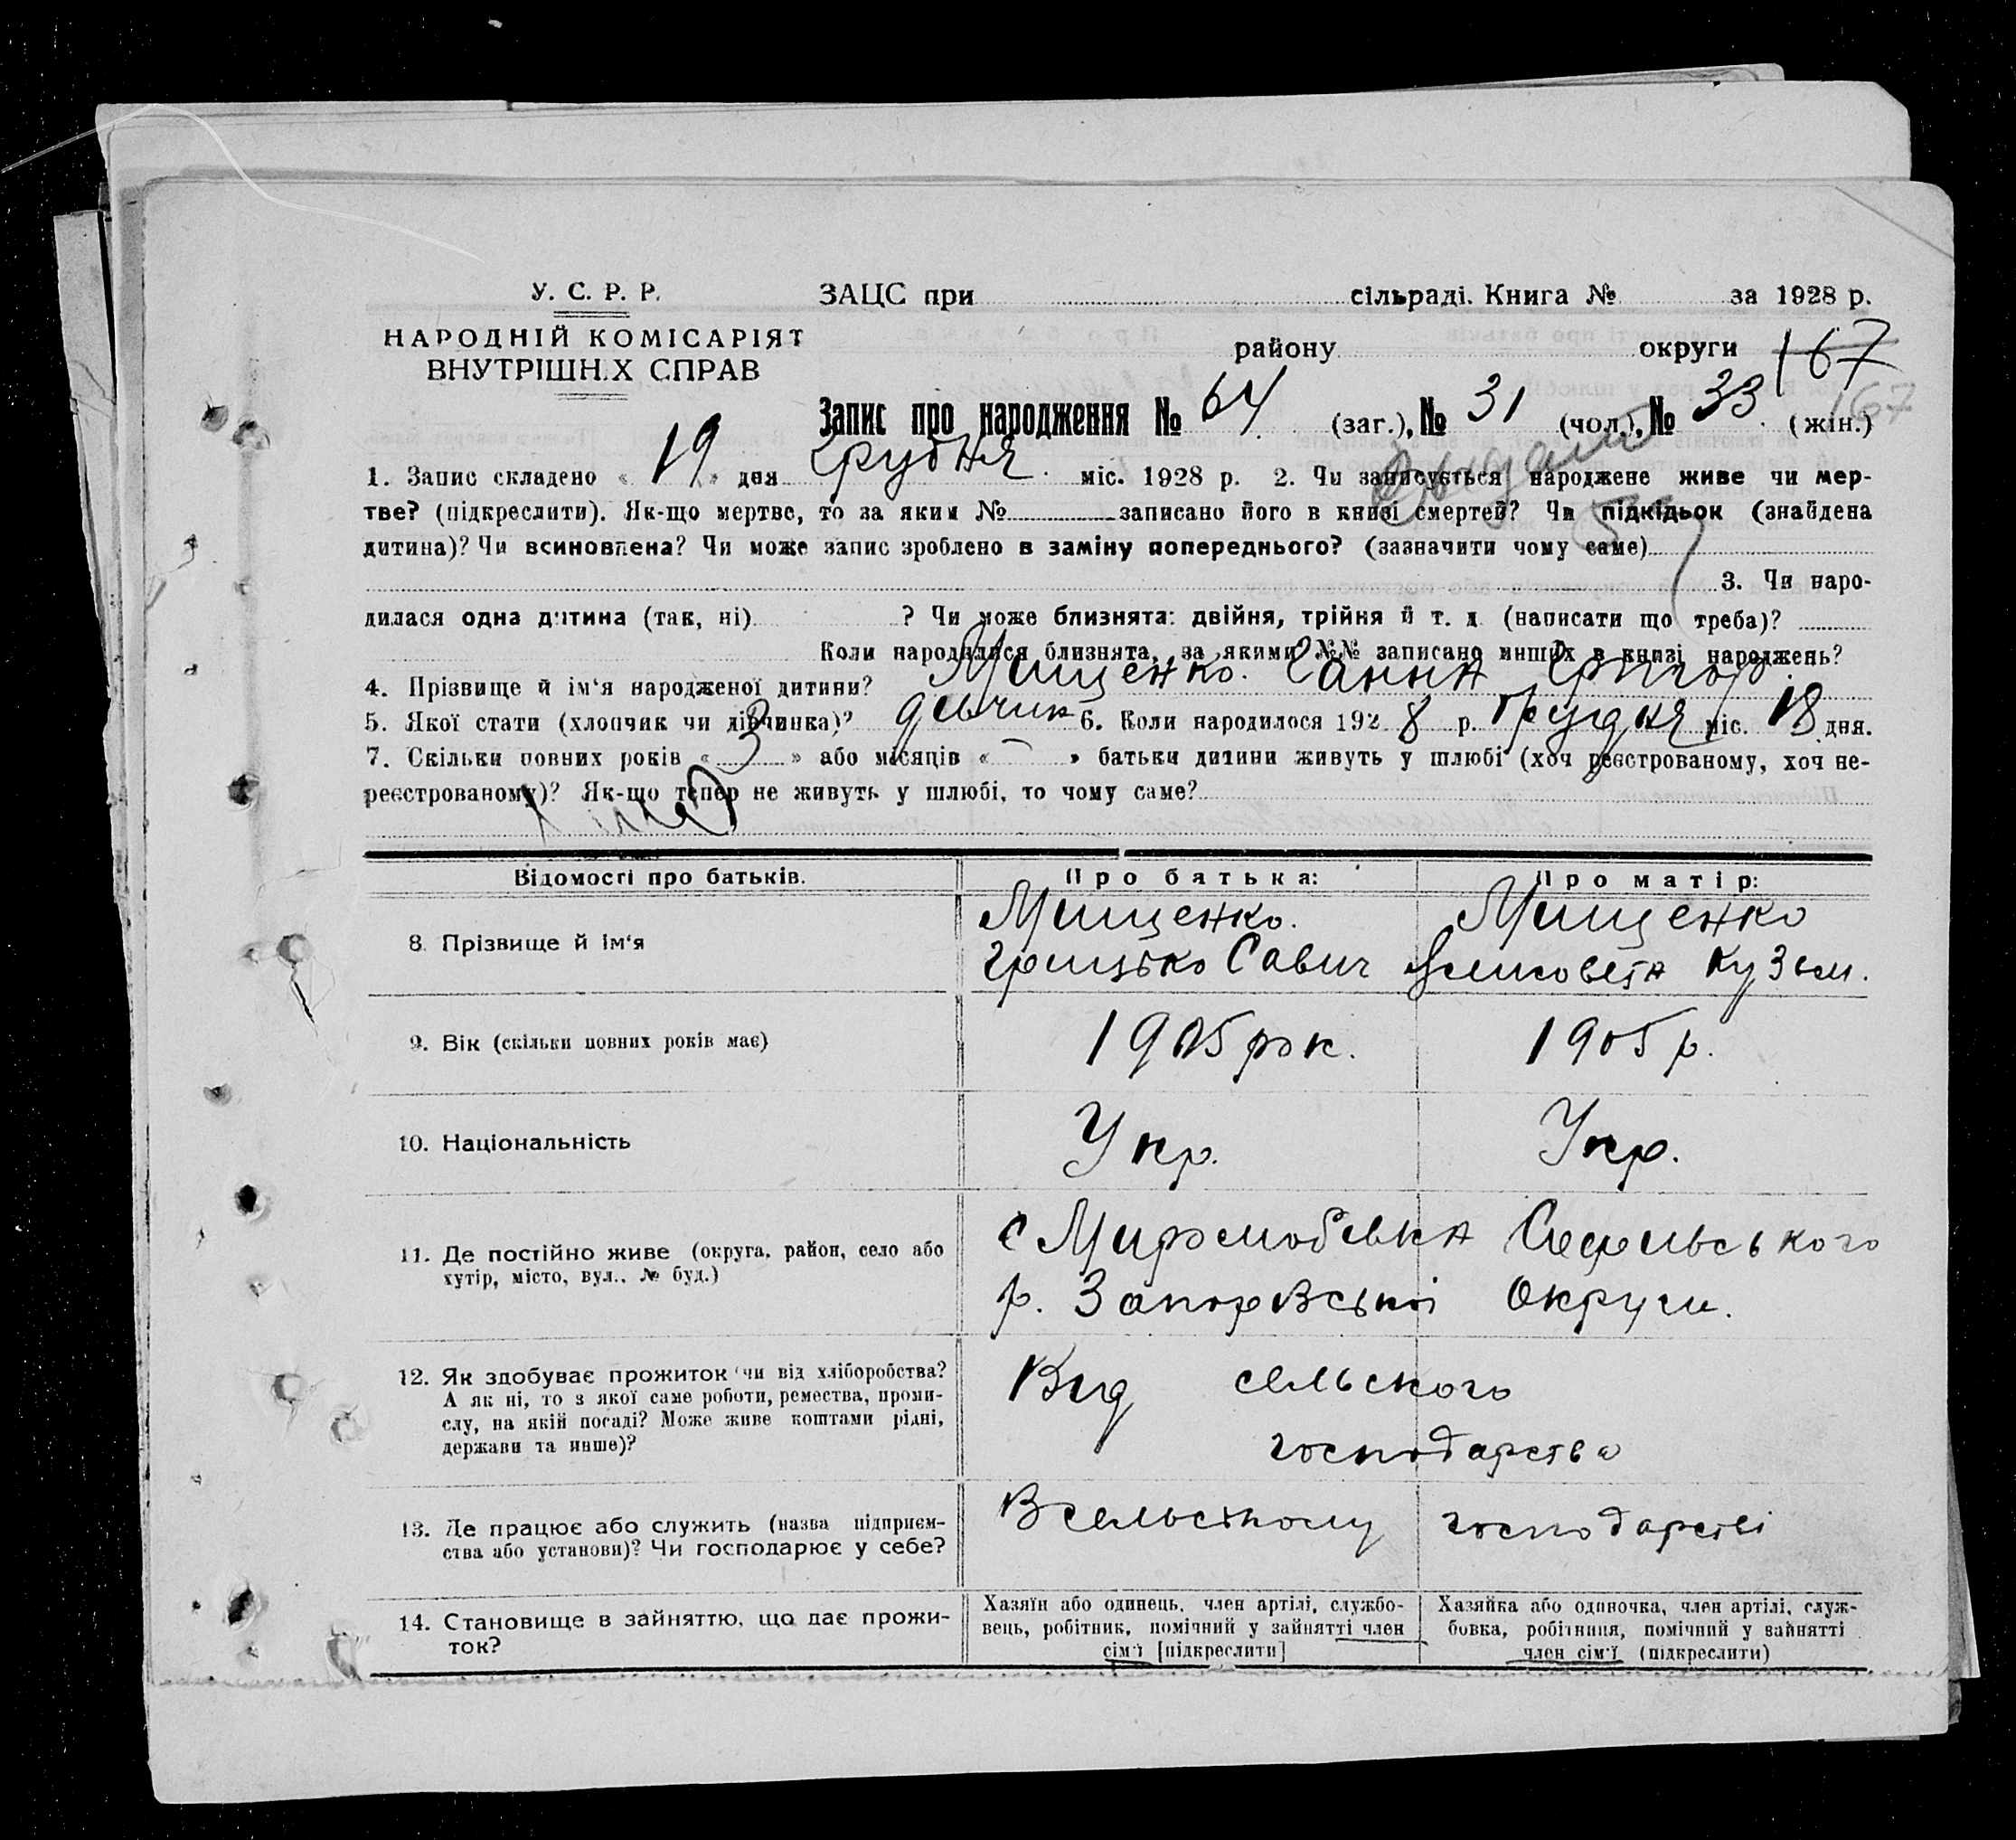 У. С. Р. Р.
НАРОДНІЙ КОМІСАРІЯТ
ВНУТРІШН.Х СПРАВ
ЗАЦС при сільраді. Книга № за 1928 р.
району округи 167
167
Запис про народження № 64 (заг.), № 31 (чол.), № 33 (жін.)
1. Запис складено « 19 » дня грудня міс. 1928 р. 2. Чи записується народжене живе чи мер-
тве? (підкреслити). Як-що мертве, то за яким № записано його в книзі смертей? Чи підкідьок (знайдена
дитина)? Чи всиновлена? Чи може запис зроблено в заміну попереднього? (зазначити чому саме)
3. Чи наро-
дилася одна дитина (так, ні) ? Чи може близнята: двійня, трійня й т. д. (написати що треба)?
Коли народилися близнята, за якими №№ записано инших в книзі народжень?
4. Прізвище й ім'я народженої дитини? Мищенко. Ганна Григор.
5. Якої стати (хлопчик чи дівчинка)? 6. Коли народилося 192 8 р. Грудня міс. 18 дня.
7. Скільки повних років « 3 » або місяців « — » батьки дитини живуть у шлюбі (хоч реєстрованому, хоч не-
реєстрованому)? Як-що тепер не живуть у шлюбі, то чому саме?
Відомості про батьків. Про батька: Про матір:
8. Прізвище й ім'я
Мищенко. Мищенко
Грицько Савич Лисовета Кузьм.
9. Вік (скільки повних років має) 1905 рок. 1905 р.
10. Національність Укр. Укр.
11. Де постійно живе (округа, район, село або
хутір, місто, вул., № буд.)
с Миролюбевка Софиевського
р. Запорєвської Округи.
12. Як здобуває прожиток (чи від хліборобства?
А як ні, то з якої саме роботи, ремества, проми-
слу, на якій посаді? Може живе коштами рідні,
держави та инше)?
Вид сельского
господарства
13. Де працює або служить (назва підприєм-
ства або установи)? Чи господарює у себе?
В сельському господарстві
14. Становище в зайняттю, що дає прожи-
ток?
Хазяїн або одинець, член артілі, службо-
вець, робітник, помічний у зайнятті член
сім'ї [підкреслити]
Хазяйка або одиночка, член артілі, служ-
бовка, робітниця, помічний у зайнятті
член сім'ї (підкреслити)